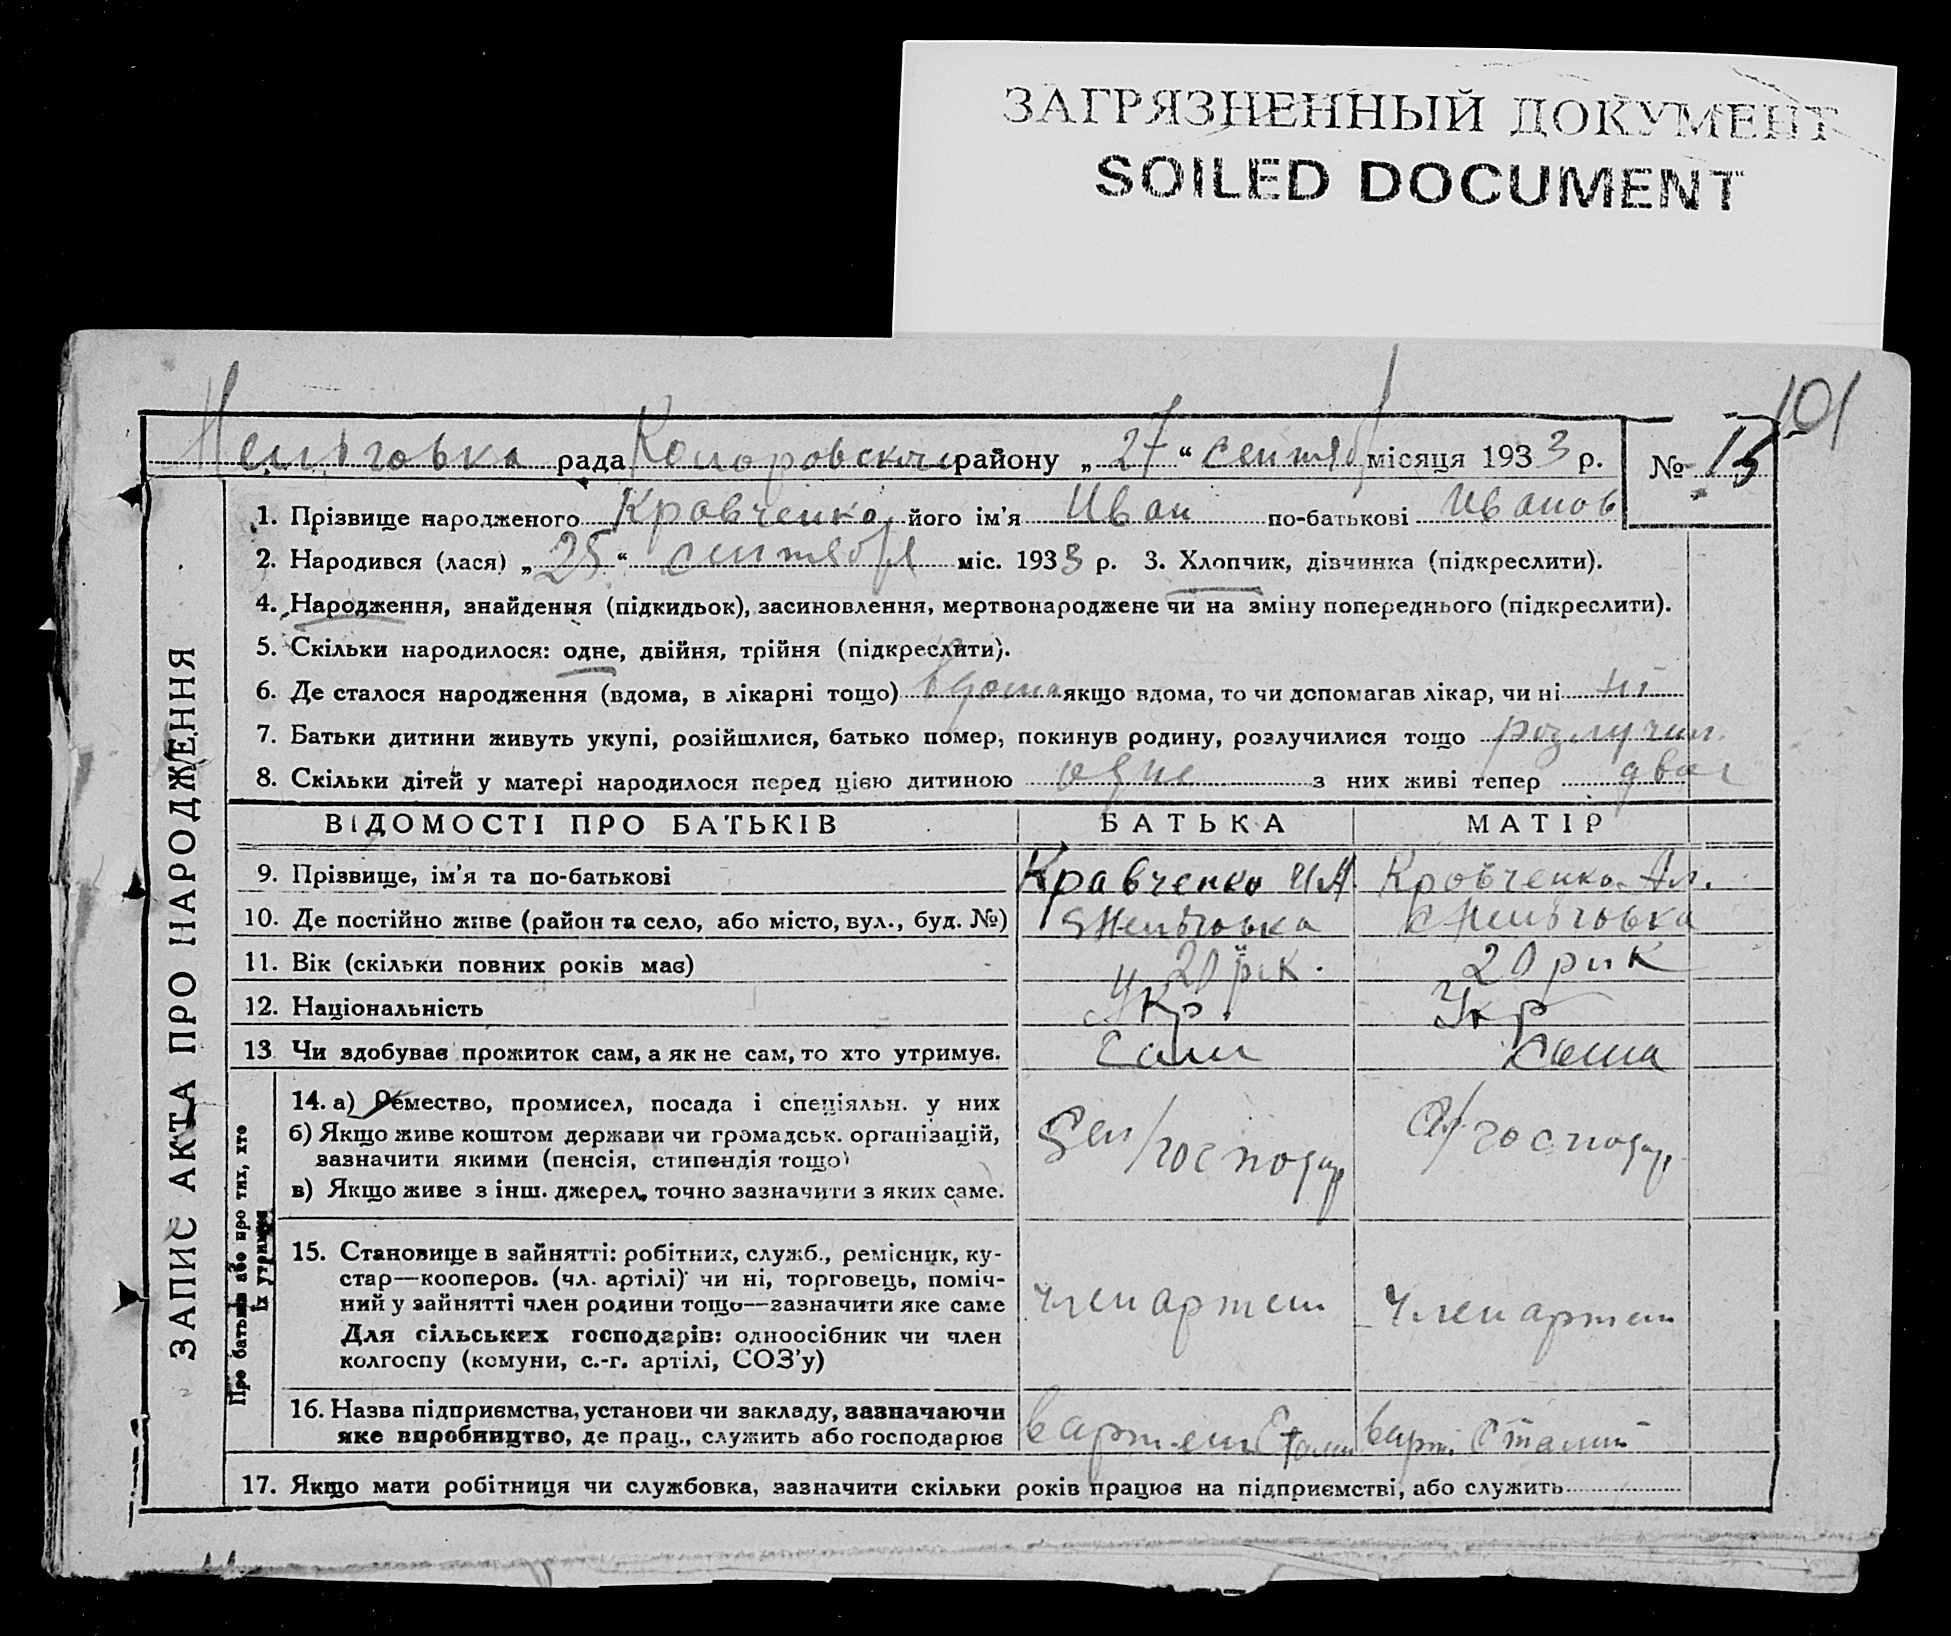 ЗАГРЯЗНЕННЫЙ ДОКУМЕНТ
SOILED DOCUMENT
101
рада району „27“ сентяб місяця 1933 р. № 15
1. Прізвище народженого Кравченко його ім’я Иван по-батькові Иванов
2. Народився (лася) „25“ сентября міс. 1933 р. 3. Хлопчик, дівчинка (підкреслити).
4. Народження, знайдення (підкидьок), засиновлення, мертвонароджене чи на зміну попереднього (підкреслити).
5. Скільки народилося: одне, двійня, трійня (підкреслити).
6. Де сталося народження (вдома, в лікарні тощо) вдома якщо вдома, то чи допомагав лікар, чи ні ні
7. Батьки дитини живуть укупі, розійшлися, батько помер, покинув родину, розлучилися тощо розлучил.
8. Скільки дітей у матері народилося перед цією дитиною одне з них живі тепер двоє
ВІДОМОСТІ ПРО БАТЬКІВ БАТЬКА МАТІР
9. Прізвище, ім’я та по-батькові Кравченко И А. Кровченко Ал.
10. Де постійно живе (район та село, або місто, вул., буд. №)
11. Вік (скільки повних років має) 20 рік. 20 рик
12. Національність Укр. Укр
13 Чи здобуває прожиток сам, а як не сам, то хто утримує. Сам Сама
14. а) Ремество, промисел, посада і спеціяльн. у них
б) Якщо живе коштом держави чи громадськ. організацій,
зазначити якими (пенсія, стипендія тощо)
в) Якщо живе з інш. джерел, точно зазначити з яких саме.
/господар /господар
15. Становище в зайнятті: робітник, служб., ремісник, ку-
стар—кооперов. (чл. артілі) чи ні, торговець, поміч-
ний у зайнятті член родини тощо—зазначити яке саме
Для сільських господарів: одноосібник чи член
колгоспу (комуни, с.-г. артілі, СОЗ’у)
член артели член артели
16. Назва підприємства, установи чи закладу, зазначаючи
яке виробництво, де прац., служить або господарює
в артели Сталин в арт. Сталин
17. Якщо мати робітниця чи службовка, зазначити скільки років працює на підприємстві, або служить
ЗАПИС АКТА ПРО НАРОДЖЕННЯ
Про батька або про тих, хто
їх утримує